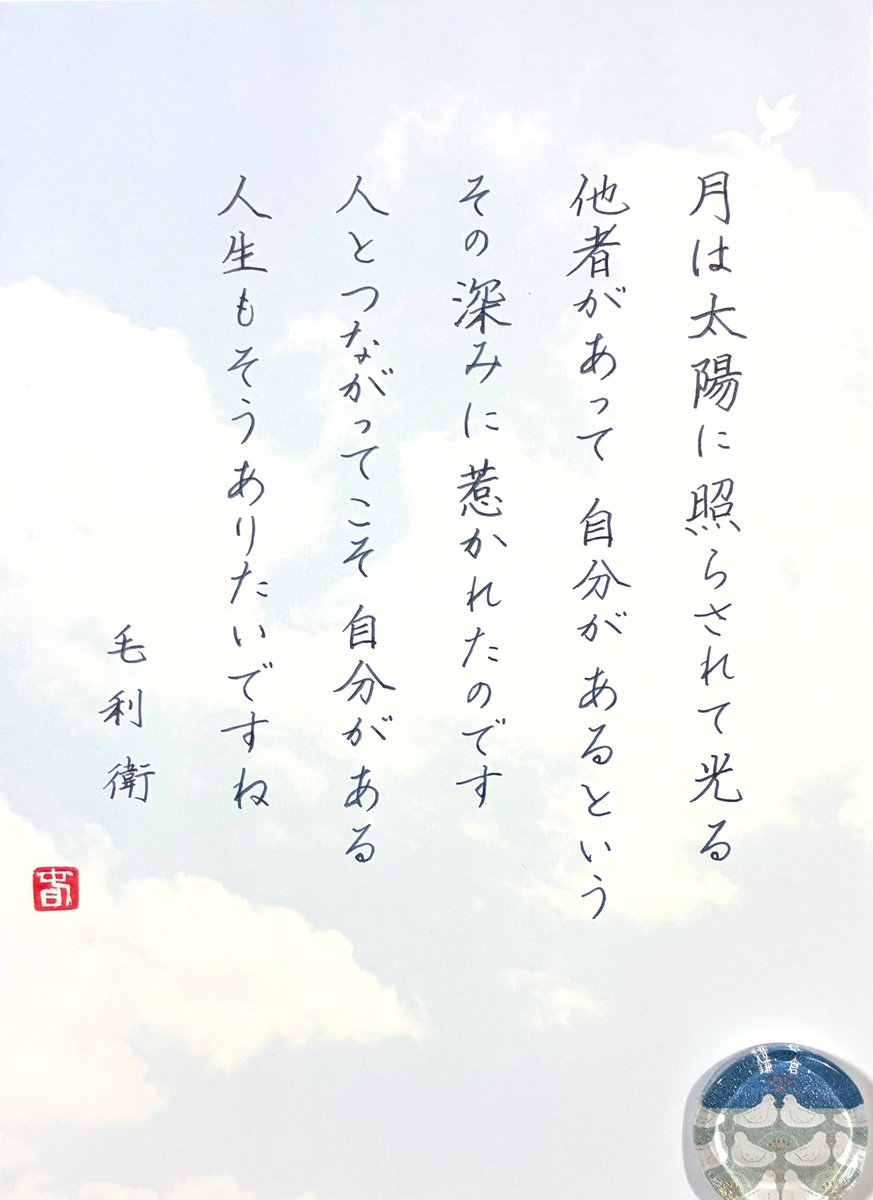 月は太陽に照らされて光る
他者があって 自分が あるという
その深みに惹かれたのです
人とつながってこそ 自分がある
人生もそうありたいですね
毛利衛